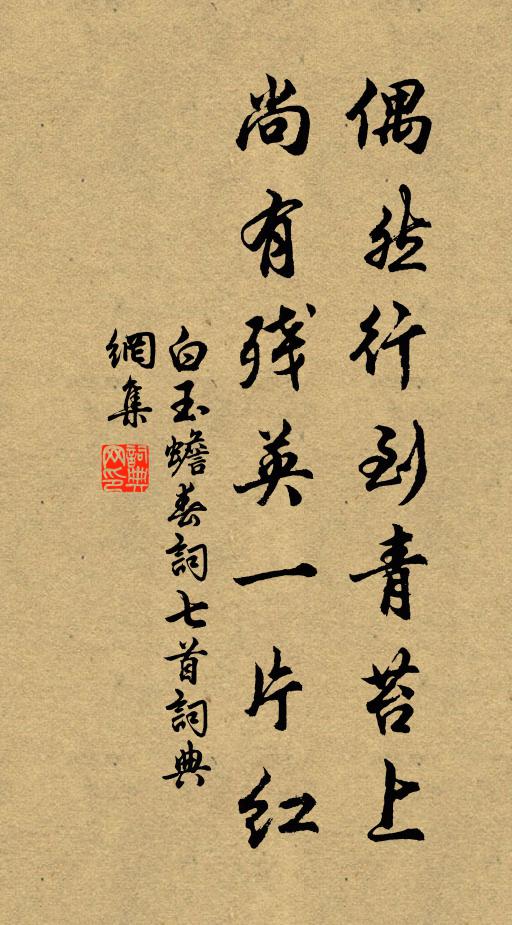 偶然行到青苔上
尚有残英一片红
白玉蟾春詞七首詞典
網集
詞典
网印